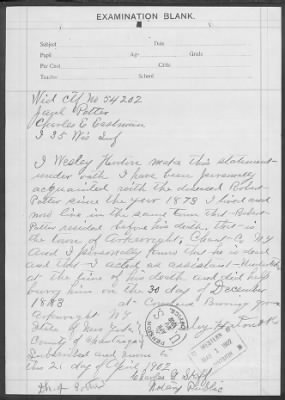 EXAMINATION BLANK.
Subject Date
Pupil Age Grade
Per Cent City
Teacher School
Wid Ctf No 54202
Potter
Charles E Eastman
I 35 Wis Inf
I Wesley Horton make this statement
under oath I have been personally
acquainted with the deceased Robert
Potter since the year 1878 I lived and
now live in the same town that Robert
Potter resided before his death. That is
the town of Arkwright, Chaut Co NY
And I personally know that he is dead
and that I acted as assistant
at the time of his death and did help
bury him on the 30 day of December
1883 at Burying ground
Arkwright NY
State of New York
County of Chautauqua
Subscribed and sworn to
this 21 day of April 1902
Charles
Notary Public
U S
WESTERN
MAY 1902
DIVISION